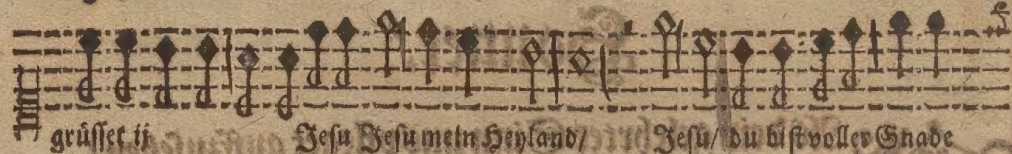 grüsset ij Jesu Jesu mein Heyland/ Jesu/ du bist voller Gnade